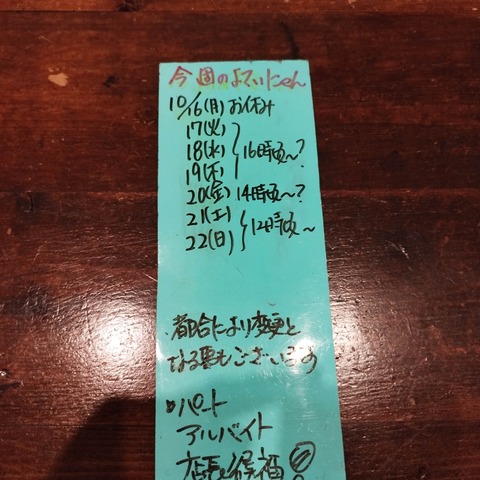 今週のよていにゃん
10/16(月)お休み
17(火)
18(水) 16時頃~?
19(木)
20(金) 14時頃~?
21(土) 12時頃~
22(日)
都合により変更と
なる事もございます
パート
アルバイト
店長候補